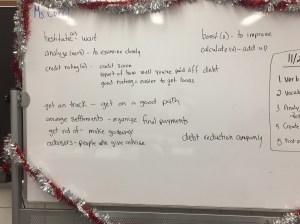 hesitate(v)- wait
analyze(verb) - to examine closely
credit rating(n) - credit score
report of how well you've paid off debt
good rating = easier to get loans
get on track - get on a good path
arrange settlements - organize final payments
get rid of - make go away
advisors - people who give advice
debt reduction company
boost(v) - to improve
calculate(v) - add up
11/2
1. Verb
2. Vocab
3. Analy
5.